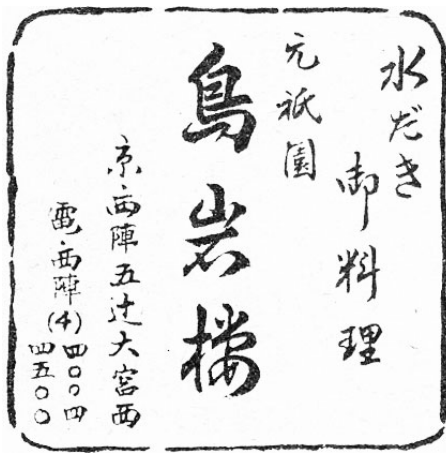 水だき
御料理
元祇園
鳥岩楼
京・西陣五辻大宮西
電・西陣(4)四〇〇四
四五〇〇